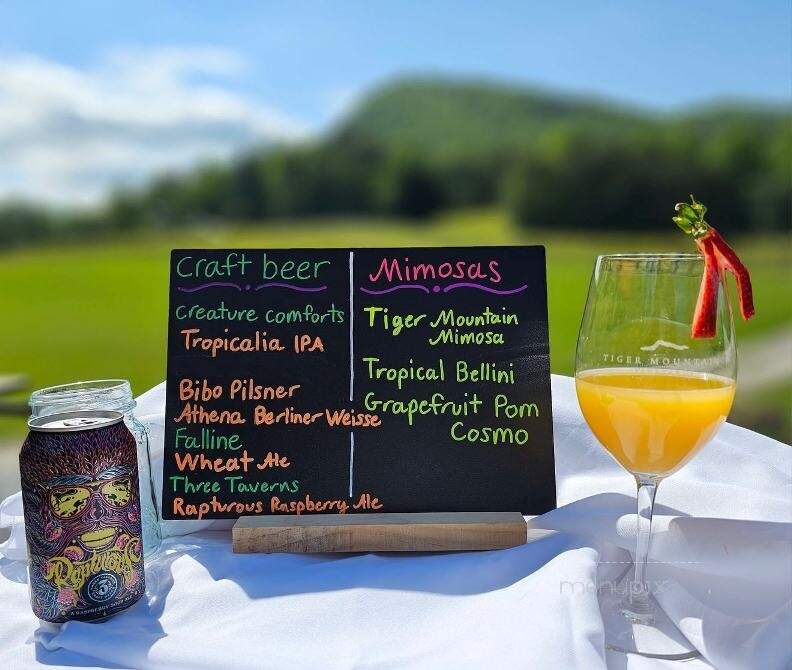 Craft beer
Creature comforts
Tropicalia IPA
Bibo Pilsner
Athena Berliner Weisse
Falline
Wheat Ale
Three Taverns
Rapturous Raspberry Ale
Mimosas
Tiger Mountain
Mimosa
Tropical Bellini
Grapefruit Pom
Cosmo
TIGER MOUNTAIN
Rapturous
3
A RASPBERRY SOUR ALE
menupix